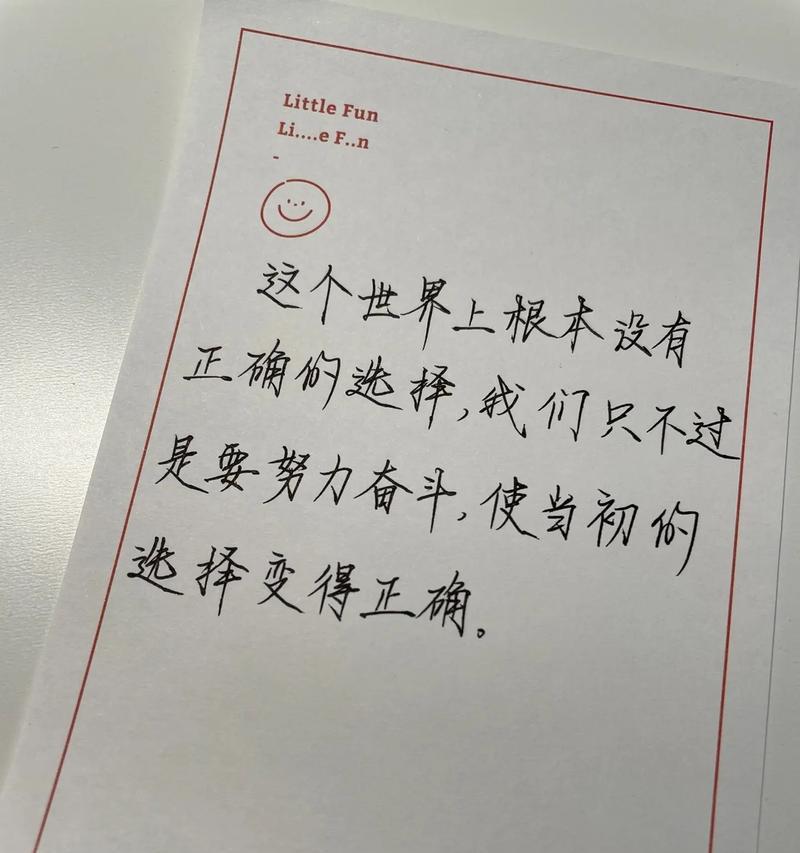 Little Fun
Li....e F..n
-
这个世界上根本没有
正确的选择,我们只不过
是要努力奋斗,使当初的
选择变得正确。